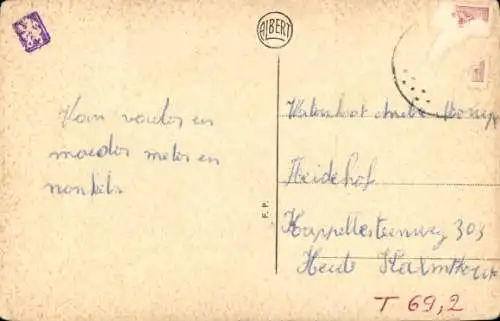 ALBERT
Van vader en
moeder meter en
nonkels
Heidehof
Kapellesteenweg 303
Heide Kalmthout
F. P.
T 69,2